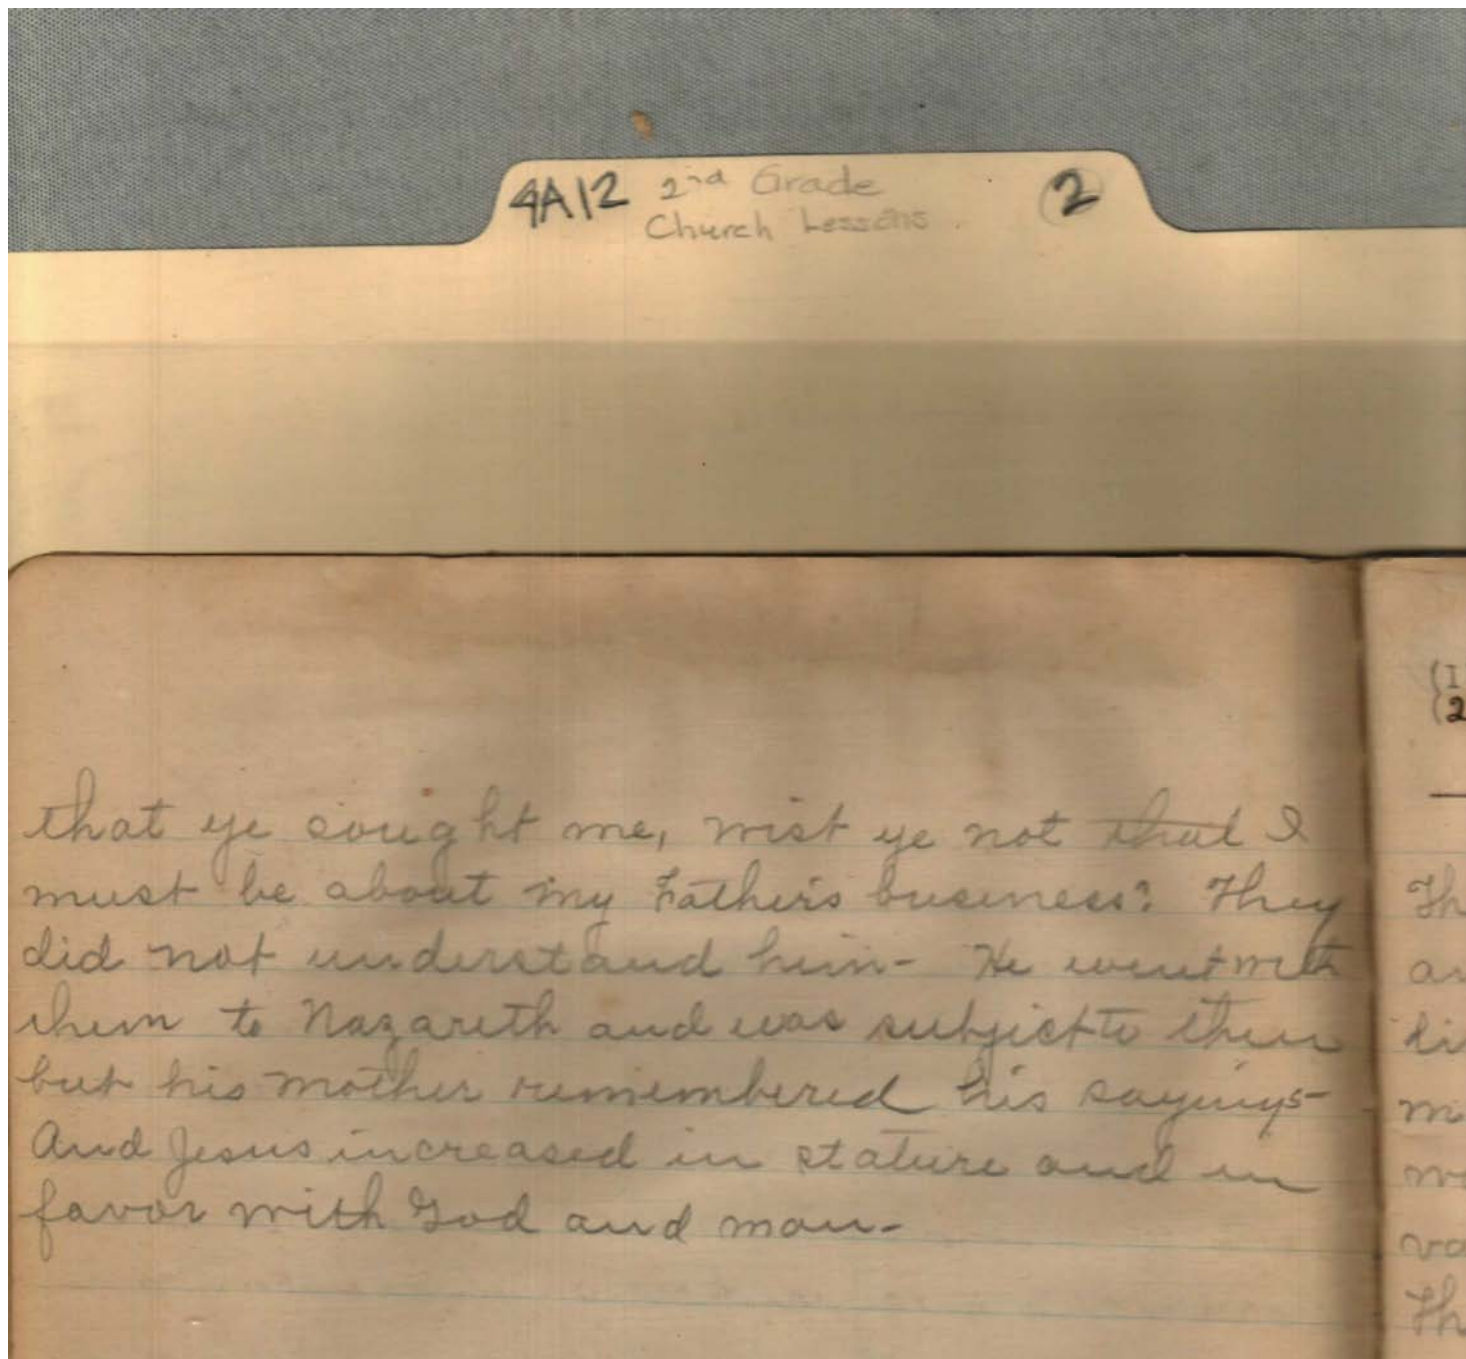 4A12 2nd Grade 2
Church Lessons
that ye sought me, wist ye not that I
must be about my Father's business? They
did not understand him- He went with
them to Nazareth and was subject to them
but his mother remembered his sayings-
And Jesus increased in stature and in
favor with God and man-
(I
(2
Th
an
di
m
wo
vo
Th